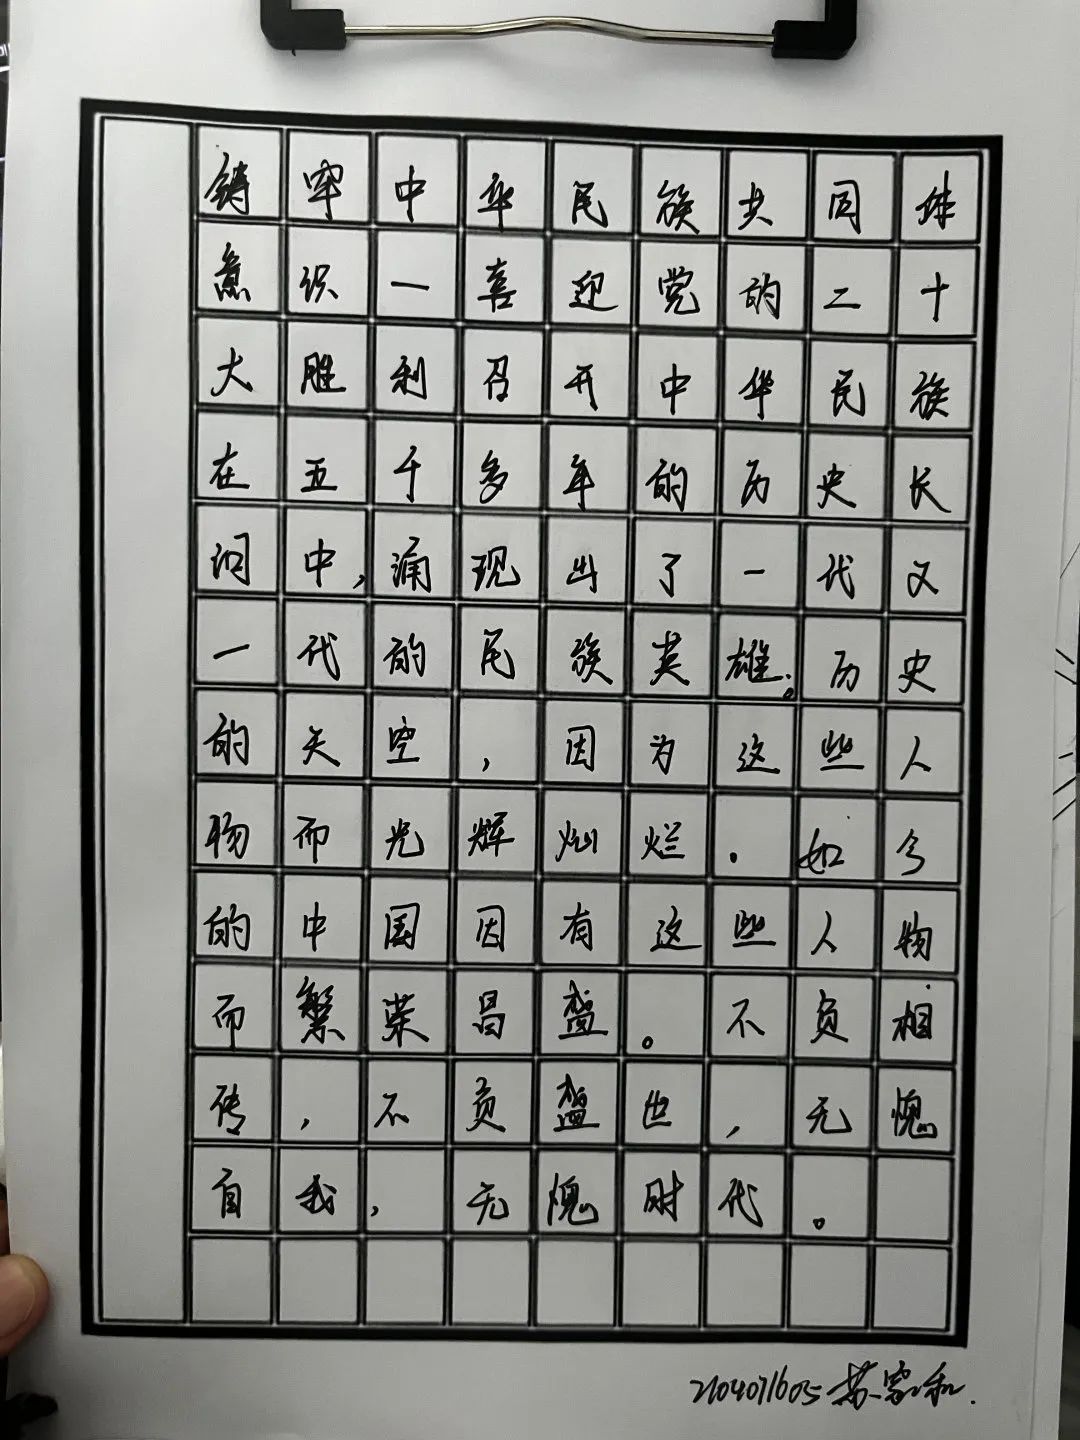 铸牢中华民族共同体
意识一喜迎党的二十
大胜利召开中华民族
在五千多年的历史长
河中,涌现出了一代又
一代的民族英雄。历史
的天空,因为这些人
物而光辉灿烂.如今
的中国因有这些人物
而繁荣昌盛。不负相
传,不负盛世,无愧
自我,无愧时代。
2104071605 苏家和.